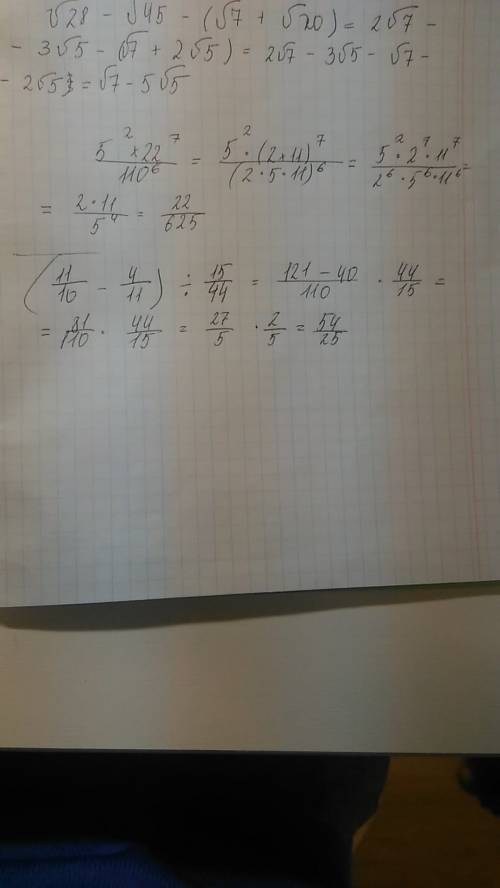 √28 - √45 - (√7 + √20) = 2√7 -
- 3√5 - (√7 + 2√5) = 2√7 - 3√5 - √7 -
- 2√5 = √7 - 5√5
5² × 22⁷ / 110⁶ = 5² · (2 × 11)⁷ / (2 · 5 · 11)⁶ = 5² · 2⁷ · 11⁷ / 2⁶ · 5⁶ · 11⁶ =
= 2 · 11 / 5⁴ = 22 / 625
(11/10 - 4/11) ÷ 15/44 = 121 - 40 / 110 · 44/15 =
= 81/110 · 44/15 = 27/5 · 2/5 = 54/25